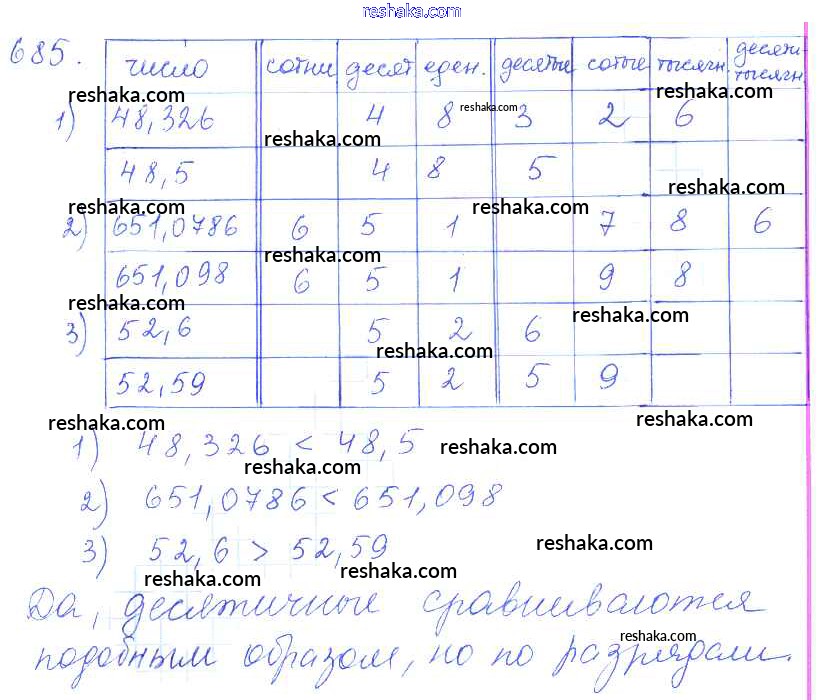 reshaka.com
685.
число сотни десят еден. десятые сотые тысячн. десяти-тысячн.
reshaka.com reshaka.com reshaka.com
1) 48,326 4 8 3 2 6
reshaka.com
48,5 4 8 5
reshaka.com
reshaka.com reshaka.com
2) 651,0786 6 5 1 7 8 6
reshaka.com
651,098 6 5 1 9 8
reshaka.com reshaka.com
3) 52,6 5 2 6
reshaka.com
52,59 5 2 5 9
reshaka.com reshaka.com
1) 48,326 < 48,5 reshaka.com
reshaka.com
2) 651,0786 < 651,098
3) 52,6 > 52,59 reshaka.com
reshaka.com reshaka.com
Да, десятичные сравниваются
reshaka.com
подобным образом, но по разрядам.
reshaka.com